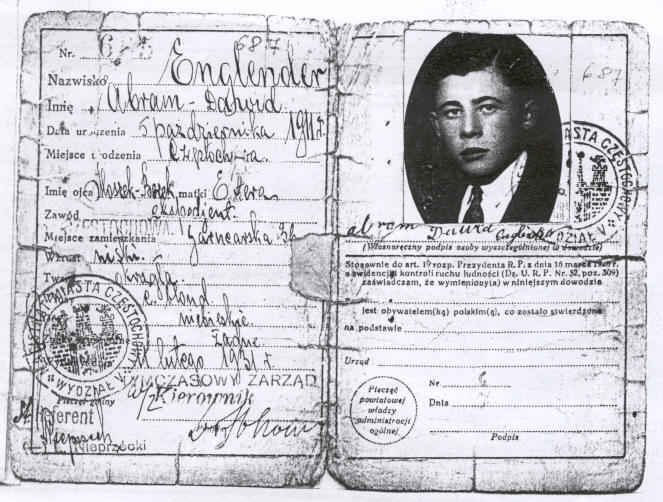 Nr. 687
Nazwisko Englender
Imię Abram-Dawid
Data urodzenia 5 października 1911 r.
Miejsce urodzenia Częstochowa
Imię ojca Moszek-Josek matki Estera
Zawód ekspedjent
Miejsce zamieszkania Garncarska 36
Wzrost
Twarz okrągła
c. blond
niebieskie
żadne
lutego 1931 r.
TYMCZASOWY ZARZĄD
w/z Kierownik
Referent
Nieprzecki
MIASTA CZĘSTOCHOWY
WYDZIAŁ V
687
MIASTA CZĘSTOCHOWY
WYDZIAŁ V
Abram Dawid Englender
(Własnoręczny podpis osoby wyszczególnionej w dowodzie)
Stosownie do art. 19 rozp. Prezydenta R. P. z dnia 16 marca 1928 r.
o ewidencji i kontroli ruchu ludności (Dz. U. R. P. Nr. 32, poz. 309)
zaświadczam, że wymieniony(a) w niniejszym dowodzie
jest obywatelem(ką) polskim(ą), co zostało stwierdzone
na podstawie
Urząd
Pieczęć
powiatowej
władzy
administracji
ogólnej
Nr
Dnia
Podpis